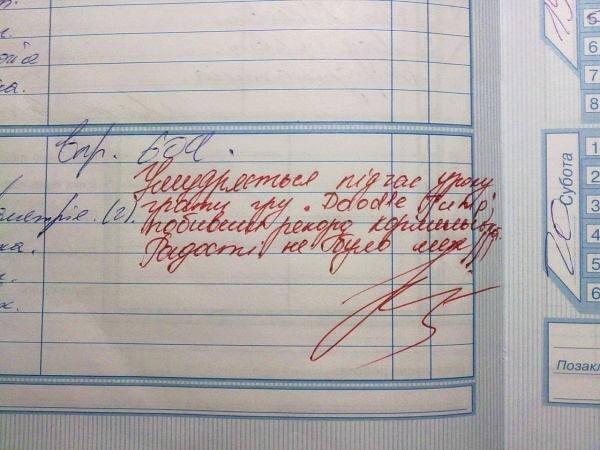 Впр. 609.
Умудряється під час уроку
грати гру. Doodle Jump,
побивши рекорд
Радості не було меж
(2).
ка.
Субота
20
19
5
6
7
8
1
2
3
4
5
6
Позакл